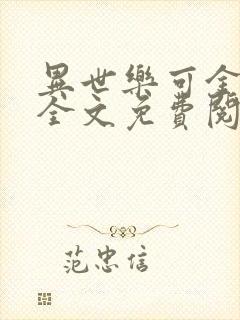 異世樂可全
全文免費閱
范忠信